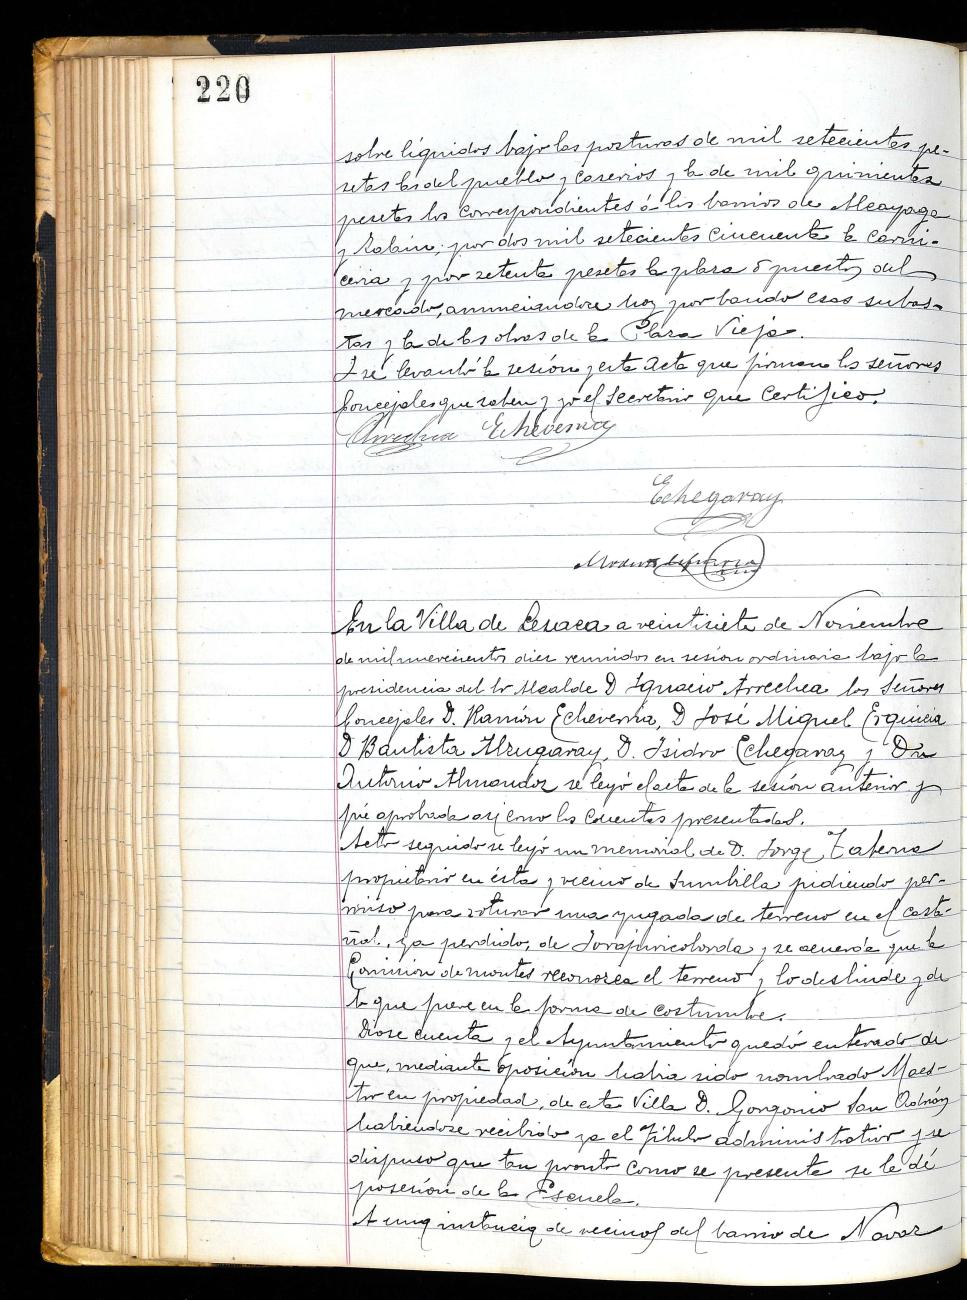 220
sobre líquidos bajo las posturas de mil setecientas pe-
setas los del pueblo y caserios y la de mil quinientas
pesetas los correspondientes á los barrios de Alcayaga
y Zalain; por dos mil setecientas cincuenta la carni-
ceria y por setenta pesetas la plaza ó puestos del
mercado, anunciandose hoy por bando esas subas-
tas y la de las obras de la Plaza Vieja.
Y se levantó la sesión y esta acta que firman los señores
Concejales que saben y yo el Secretario que certifico.
Arrechea Echeverria
Echegaray
En la Villa de Lesaca a veintisiete de Noviembre
de mil novecientos diez reunidos en sesión ordinaria bajo la
presidencia del Sr Alcalde D Ignacio Arrechea los Señores
Concejales D. Ramón Echeverria, D José Miguel Erquicia
D Bautista Alzugaray, D. Isidro Echegaray y Dn
Antonio Almandoz se leyó el acta de la sesión anterior y
fué aprobada asi como las cuentas presentadas.
Acto seguido se leyó un memorial de D. Jorge Taberna
propietario en ésta y vecino de Sumbilla pidiendo per-
miso para roturar una yugada de terreno en el casta-
ñal, ya perdido, de y se acuerda que la
Comision de montes reconozca el terreno y lo deslinde y dé
lo que fuere en la forma de costumbre.
Diose cuenta y el Ayuntamiento quedó enterado de
que, mediante oposición habia sido nombrado Maes-
tro en propiedad, de esta Villa D. Gorgonio San Adrián
habiendose recibido ya el Título administrativo y se
dispuso que tan pronto como se presente se le dé
posesión de la Escuela.
A una instancia de vecinos del barrio de Navaz